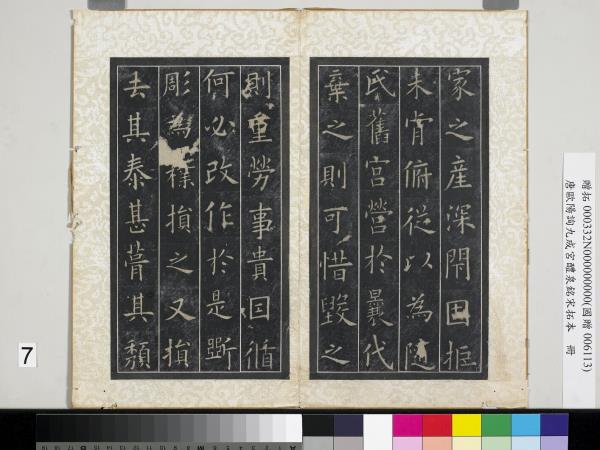 家之產深閇固拒
未肯俯從以為隨
氏舊宮營於曩代
棄之則可惜毀之
則重勞事貴因循
何必改作於是斲
彫為樸損之又損
去其泰甚葺其頹
贈拓 000332N000000000(國贈 006113)
唐歐陽詢九成宮醴泉銘宋拓本 冊
7